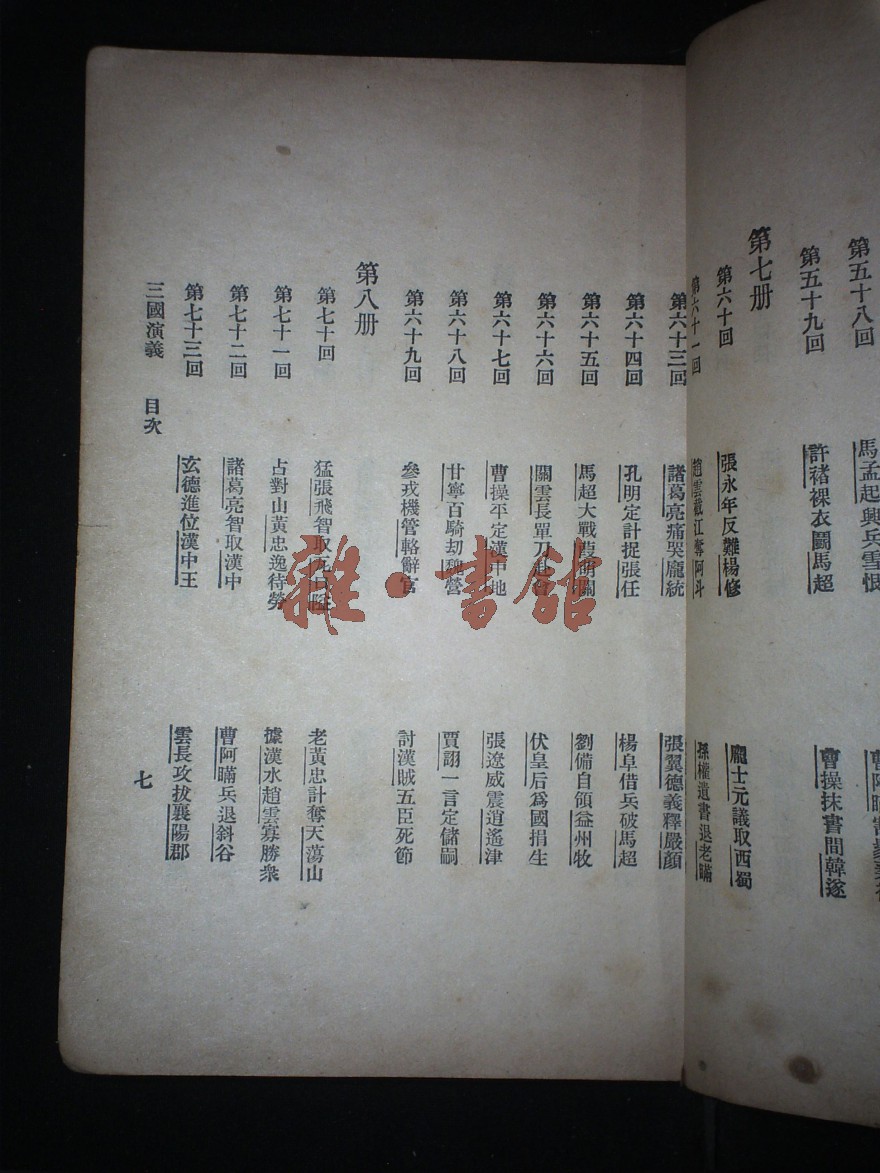 第五十八回 馬孟起興兵雪恨 曹阿瞞
第五十九回 許褚裸衣鬭馬超 曹操抹書間韓遂
第七册
第六十回 張永年反難楊修 龐士元議取西蜀
第六十一回 趙雲截江奪阿斗 孫權遺書退老瞞
第六十三回 諸葛亮痛哭龐統 張翼德義釋嚴顏
第六十四回 孔明定計捉張任 楊阜借兵破馬超
第六十五回 馬超大戰葭萌關 劉備自領益州牧
第六十六回 關雲長單刀赴會 伏皇后爲國捐生
第六十七回 曹操平定漢中地 張遼威震逍遙津
第六十八回 甘寧百騎劫魏營 賈詡一言定儲嗣
第六十九回 參戎機管輅辭官 討漢賊五臣死節
第八册
第七十回 猛張飛智取瓦口隘 老黃忠計奪天蕩山
第七十一回 占對山黃忠逸待勞 據漢水趙雲寡勝衆
第七十二回 諸葛亮智取漢中 曹阿瞞兵退斜谷
第七十三回 玄德進位漢中王 雲長攻拔襄陽郡
三國演義 目次 七
雜·書館